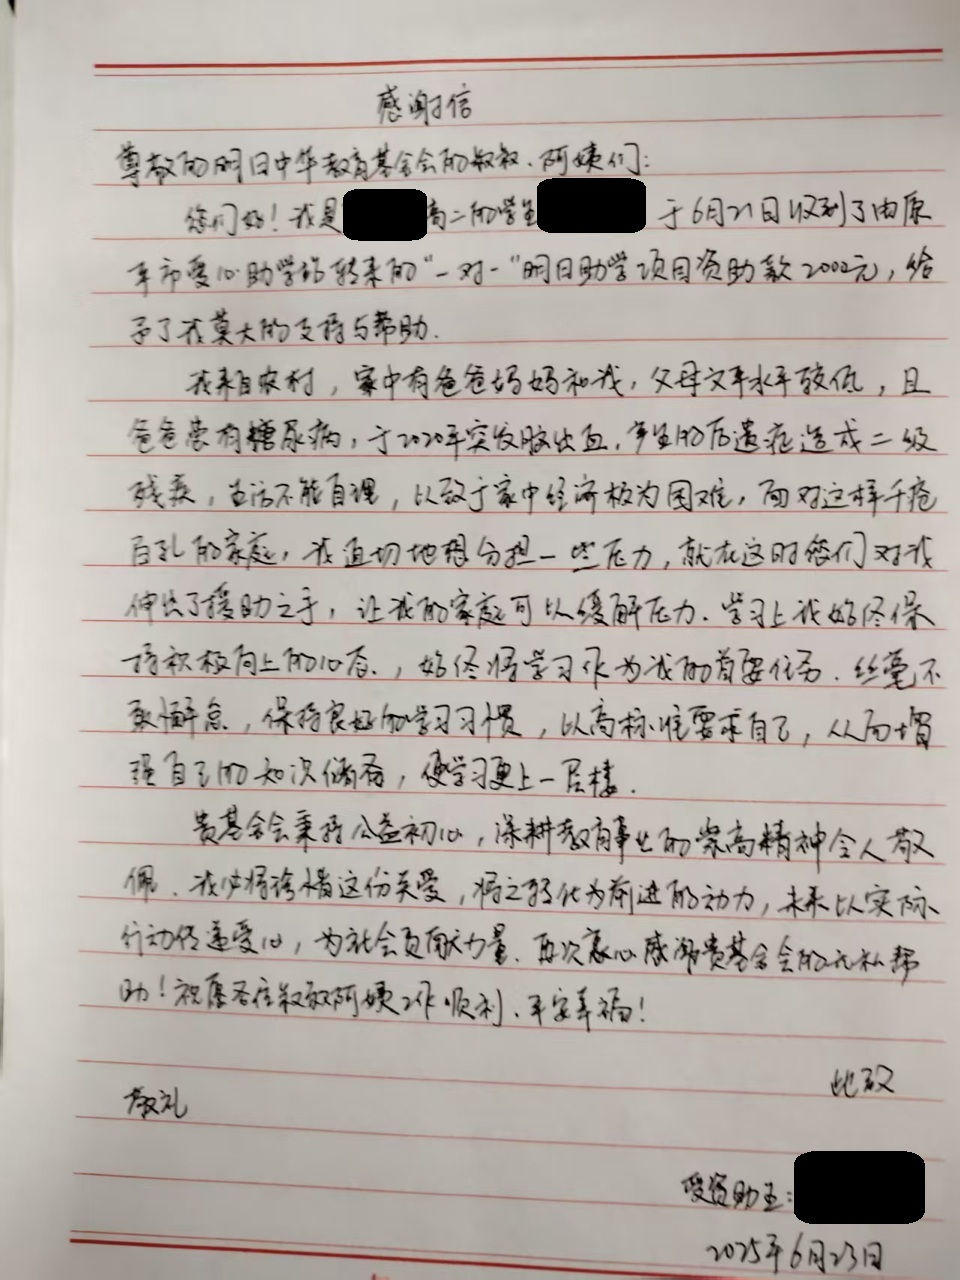 感谢信
尊敬的明日中华教育基金会的叔叔、阿姨们：
您们好！我是 高二的学生 于6月21日收到了由原
平市爱心助学站转来的“一对一”明日助学项目资助款2000元，给
予了我莫大的支持与帮助.
我来自农村，家中有爸爸妈妈和我，父母文平水平较低，且
爸爸患有糖尿病，于2020年突发脑出血，产生的后遗症造成二级
残疾，生活不能自理，以致于家中经济极为困难，面对这样千疮
百孔的家庭，我迫切地想分担一些压力，就在这时您们对我
伸出了援助之手，让我的家庭可以缓解压力.学习上我始终保
持积极向上的心态，始终将学习作为我的首要任务.丝毫不
敢懈怠，保持良好的学习习惯，以高标准要求自己，从而增
强自己的知识储备，使学习更上一层楼.
贵基金会秉持公益初心，深耕教育事业的崇高精神令人敬
佩.我必将珍惜这份关爱，将之转化为前进的动力，未来以实际
行动传递爱心，为社会贡献力量.再次衷心感谢贵基金会的无私帮
助！祝愿各位叔叔阿姨工作顺利、平安幸福！
此致
敬礼
受资助生：
2025年6月23日